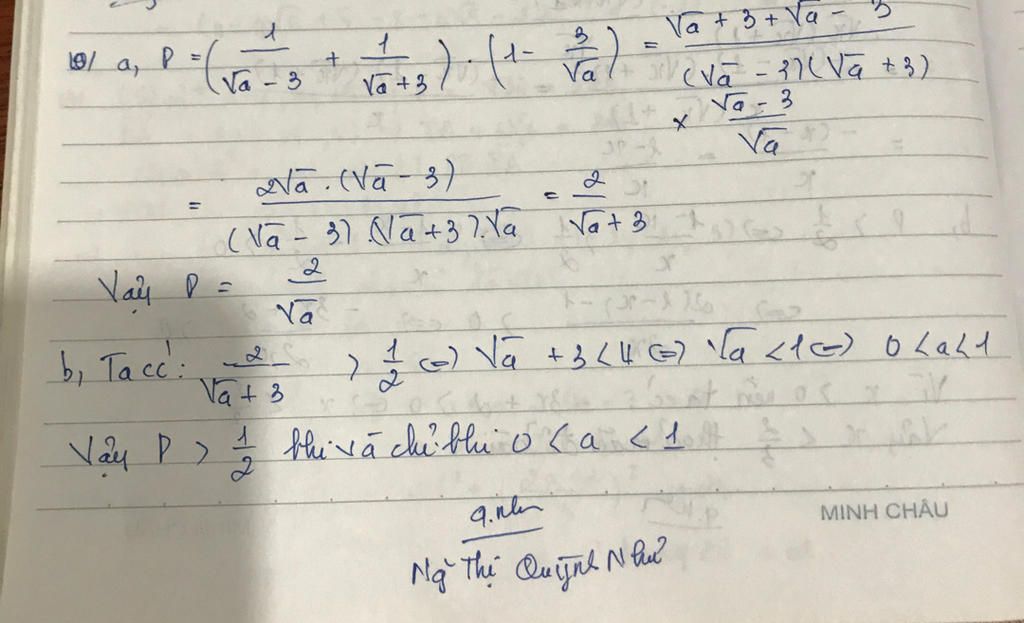 10/ a, P = (1/(√a - 3) + 1/(√a + 3)) . (1 - 3/√a) = (√a + 3 + √a - 3)/((√a - 3)(√a + 3))
× (√a - 3)/√a
= (2√a . (√a - 3))/((√a - 3) . (√a + 3) . √a) = 2/(√a + 3)
Vậy P = 2/√a
b, Ta có: 2/(√a + 3) > 1/2 <=> √a + 3 < 4 <=> √a < 1 <=> 0 < a < 1
Vậy P > 1/2 khi và chỉ khi 0 < a < 1
MINH CHÂU
Ng Thị Quỳnh Như